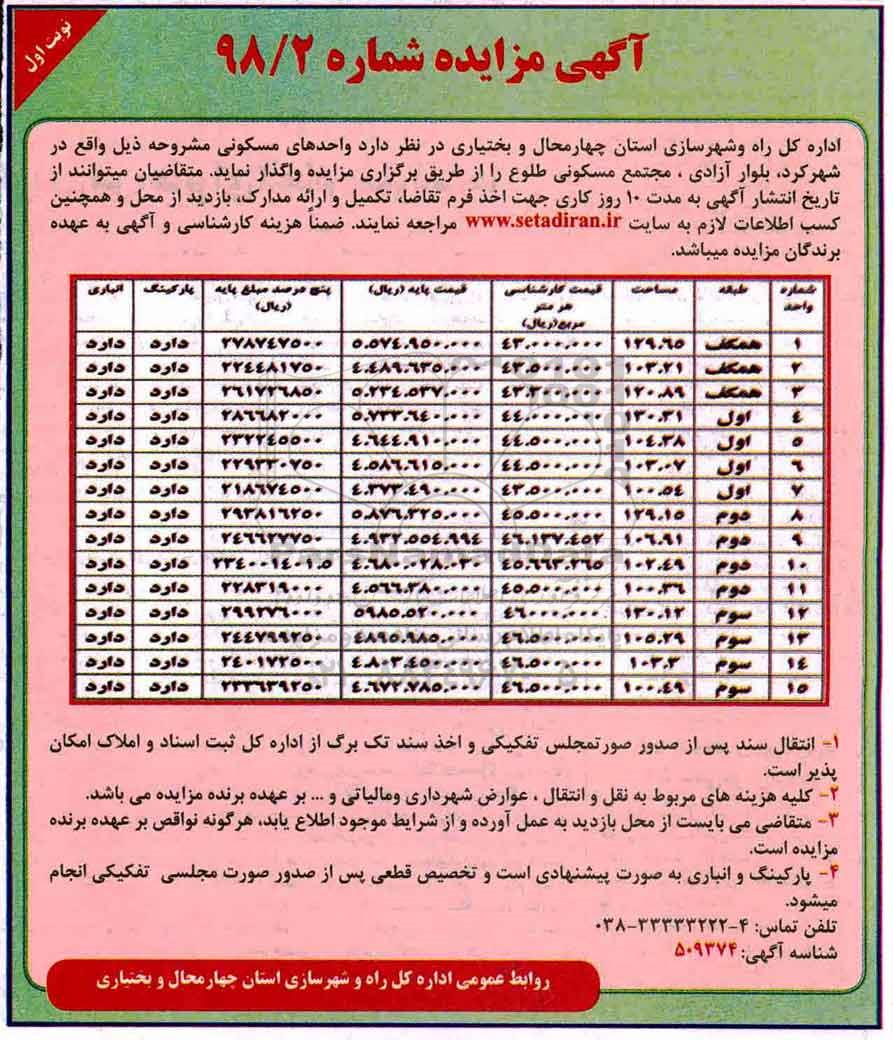 نوبت اول
آگهی مزایده شماره ۹۸/۲
اداره کل راه وشهرسازی استان چهارمحال و بختیاری در نظر دارد واحدهای مسکونی مشروحه ذیل واقع در
شهرکرد، بلوار آزادی ، مجتمع مسکونی طلوع را از طریق برگزاری مزایده واگذار نماید. متقاضیان میتوانند از
تاریخ انتشار آگهی به مدت ۱۰ روز کاری جهت اخذ فرم تقاضا، تکمیل و ارائه مدارک، بازدید از محل و همچنین
کسب اطلاعات لازم به سایت www.setadiran.ir مراجعه نمایند. ضمناً هزینه کارشناسی و آگهی به عهده
برندگان مزایده میباشد.
شماره واحد طبقه مساحت قیمت کارشناسی هر متر مربع(ریال) قیمت پایه (ریال) پنج درصد مبلغ پایه (ریال) پارکینگ انباری
۱ همکف ۱۲۹.۶۵ ۴۳.۰۰۰.۰۰۰ ۵.۵۷۴.۹۵۰.۰۰۰ ۲۷۸۷۴۷۵۰۰ دارد دارد
۲ همکف ۱۰۳.۲۱ ۴۳.۵۰۰.۰۰۰ ۴.۴۸۹.۶۳۵.۰۰۰ ۲۲۴۴۸۱۷۵۰ دارد دارد
۳ همکف ۱۲۰.۸۹ ۴۳.۳۰۰.۰۰۰ ۵.۲۳۴.۵۳۷.۰۰۰ ۲۶۱۷۲۶۸۵۰ دارد دارد
۴ اول ۱۳۰.۳۱ ۴۴.۰۰۰.۰۰۰ ۵.۷۳۳.۶۴۰.۰۰۰ ۲۸۶۶۸۲۰۰۰ دارد دارد
۵ اول ۱۰۴.۳۸ ۴۴.۵۰۰.۰۰۰ ۴.۶۴۴.۹۱۰.۰۰۰ ۲۳۲۲۴۵۵۰۰ دارد دارد
۶ اول ۱۰۳.۰۷ ۴۴.۵۰۰.۰۰۰ ۴.۵۸۶.۶۱۵.۰۰۰ ۲۲۹۳۳۰۷۵۰ دارد دارد
۷ اول ۱۰۰.۵۴ ۴۳.۵۰۰.۰۰۰ ۴.۳۷۳.۴۹۰.۰۰۰ ۲۱۸۶۷۴۵۰۰ دارد دارد
۸ دوم ۱۲۹.۱۵ ۴۵.۵۰۰.۰۰۰ ۵.۸۷۶.۳۲۵.۰۰۰ ۲۹۳۸۱۶۲۵۰ دارد دارد
۹ دوم ۱۰۶.۹۱ ۴۶.۱۳۷.۴۵۲ ۴.۹۳۲.۵۵۴.۹۹۴ ۲۴۶۶۲۷۷۵۰ دارد دارد
۱۰ دوم ۱۰۲.۴۹ ۴۵.۶۶۳.۲۶۵ ۴.۶۸۰.۰۲۸.۰۳۰ ۲۳۴۰۰۱۴۰۱.۵ دارد دارد
۱۱ دوم ۱۰۰.۳۶ ۴۵.۵۰۰.۰۰۰ ۴.۵۶۶.۳۸۰.۰۰۰ ۲۲۸۳۱۹۰۰۰ دارد دارد
۱۲ سوم ۱۳۰.۱۲ ۴۶.۰۰۰.۰۰۰ ۵۹۸۵.۵۲۰.۰۰۰ ۲۹۹۲۷۶۰۰۰ دارد دارد
۱۳ سوم ۱۰۵.۲۹ ۴۶.۵۰۰.۰۰۰ ۴۸۹۵.۹۸۵.۰۰۰ ۲۴۴۷۹۹۲۵۰ دارد دارد
۱۴ سوم ۱۰۳.۳ ۴۶.۵۰۰.۰۰۰ ۴.۸۰۳.۴۵۰.۰۰۰ ۲۴۰۱۷۲۵۰۰ دارد دارد
۱۵ سوم ۱۰۰.۴۹ ۴۶.۵۰۰.۰۰۰ ۴.۶۷۲.۷۸۵.۰۰۰ ۲۳۳۶۳۹۲۵۰ دارد دارد
۱- انتقال سند پس از صدور صورتمجلس تفکیکی و اخذ سند تک برگ از اداره کل ثبت اسناد و املاک امکان
پذیر است.
۲- کلیه هزینه های مربوط به نقل و انتقال ، عوارض شهرداری ومالیاتی و ... بر عهده برنده مزایده می باشد.
۳- متقاضی می بایست از محل بازدید به عمل آورده و از شرایط موجود اطلاع یابد، هرگونه نواقص بر عهده برنده
مزایده است.
۴- پارکینگ و انباری به صورت پیشنهادی است و تخصیص قطعی پس از صدور صورت مجلسی تفکیکی انجام
میشود.
تلفن تماس: ۴-۳۳۳۳۳۲۲۲-۰۳۸
شناسه آگهی: ۵۰۹۳۷۴
روابط عمومی اداره کل راه و شهرسازی استان چهارمحال و بختیاری